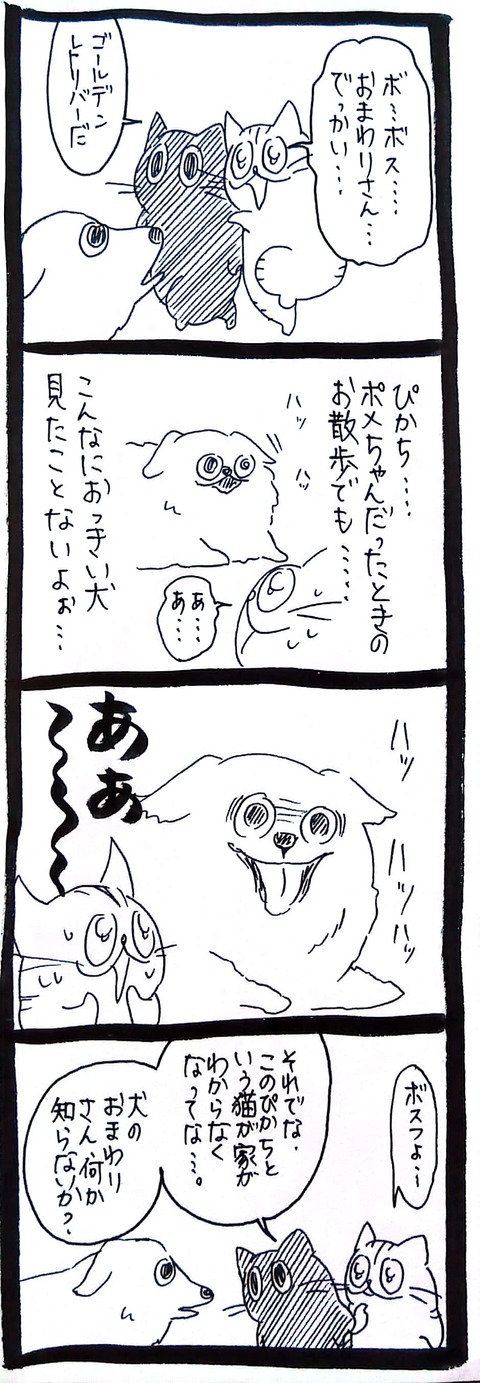 ボ…ボス……
おまわりさん…
でっかい……
ゴールデン
レトリバーだ
ぴかち……
ポメちゃんだったときの
お散歩でも……
ハッ
ハッ
こんなにおっきい犬
見たことないよぉ…
ああ
……
ハッ
ハッハッ
ああ
〜〜〜
ボスつよ…
それでな、
このぴかちと
いう猫が家が
わからなく
なってな…。
犬の
おまわり
さん、何か
知らないか？